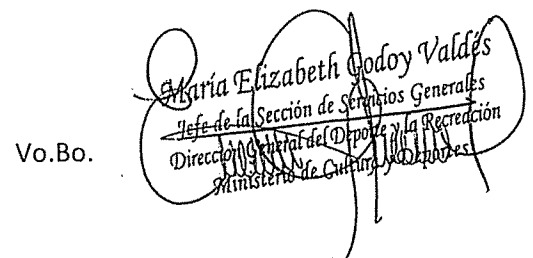 María Elizabeth Godoy Valdés
Jefe de la Sección de Servicios Generales
Dirección General del Deporte y la Recreación
Ministerio de Cultura y Deportes
Vo.Bo.